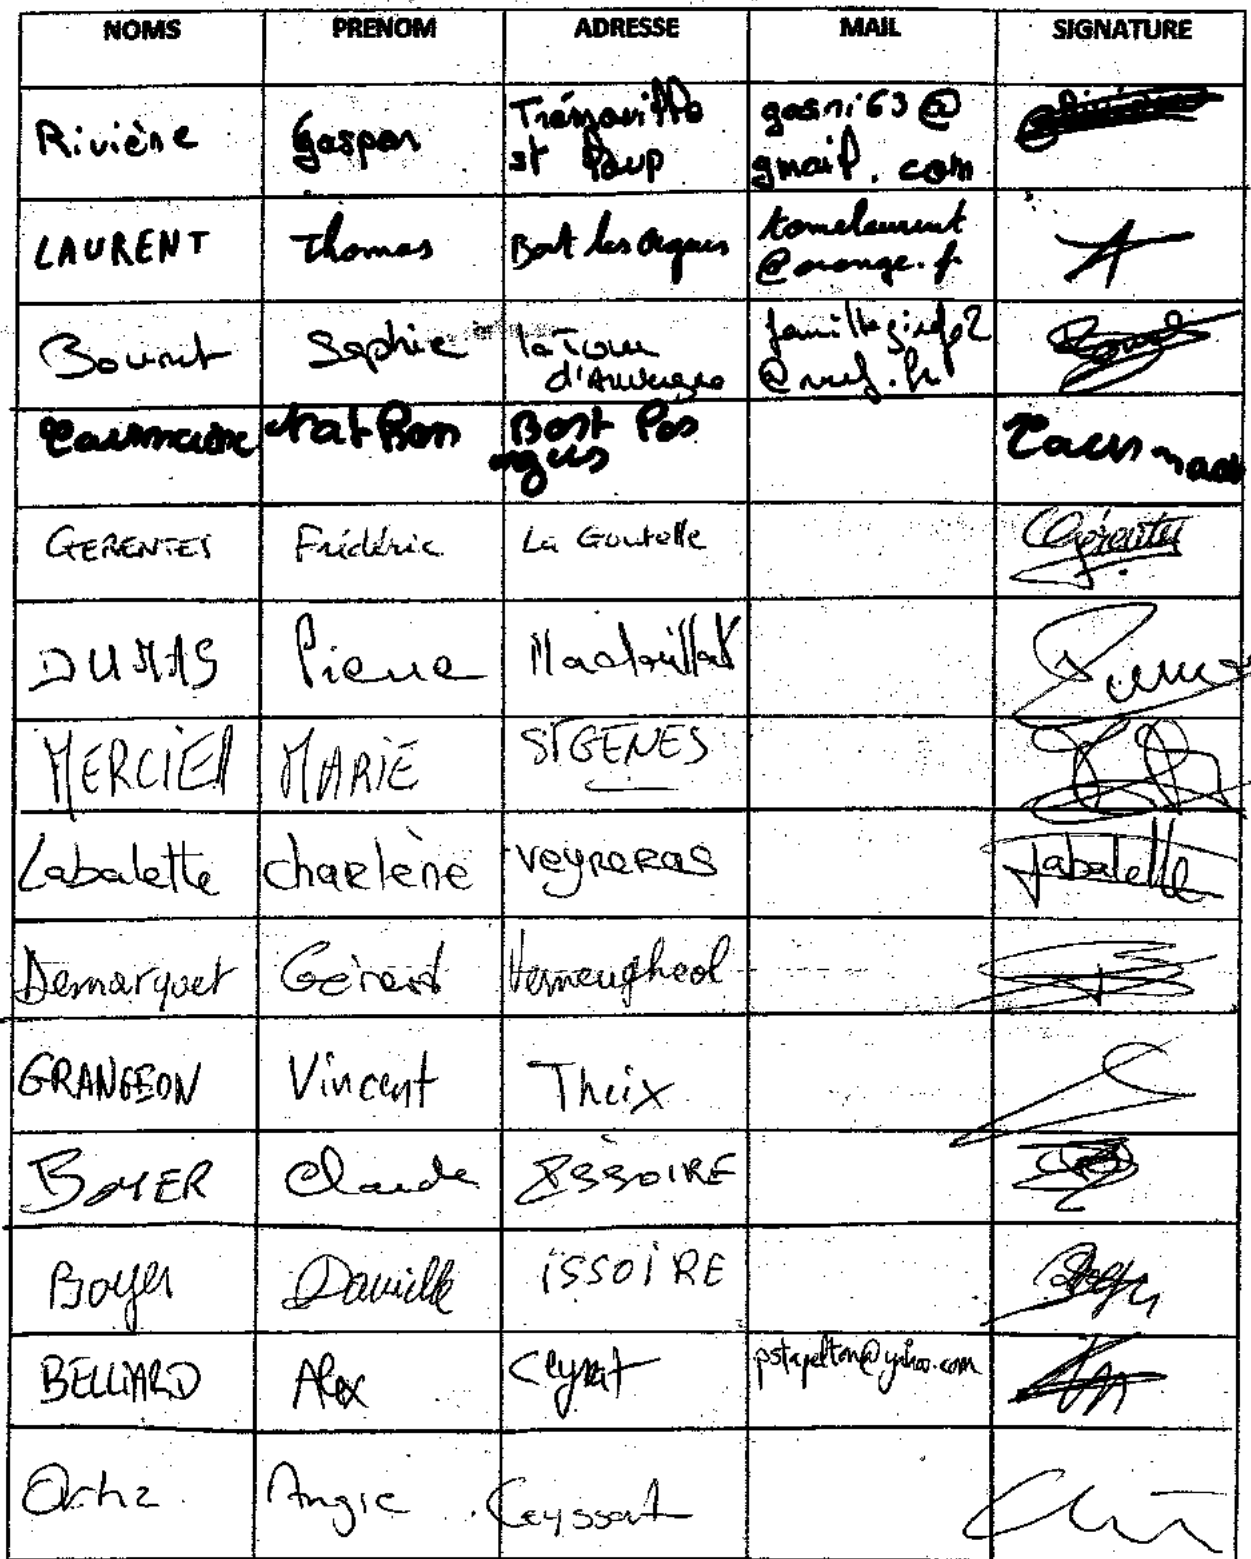 NOMS PRENOM ADRESSE MAIL SIGNATURE
Rivière Gaspar st Loup gasri63@ gmail.com
LAURENT Thomas Bort les Orgues tomelaurent @orange.fr
Sophie la Tour d'Auvergne
Bort les orgues
GERENTES Frédéric La Goutelle Gérentes
DUMAS Pierre
MERCIER MARIE ST GENES
Labalette charlène veyreras Labalette
Demarquet Gérard Verneugheol
GRANGEON Vincent Theix
BOYER Claude ISSOIRE
Boyer Danielle ISSOIRE
BELLIARD Alex Ceyrat pstapelton@yahoo.com
Ortiz Angie Ceyssat